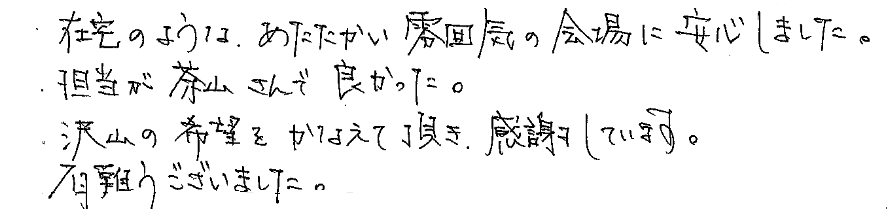 ・在宅のような、あたたかい雰囲気の会場に安心しました。
・担当が茶山さんで良かった。
・沢山の希望をかなえて頂き、感謝しています。
有難うございました。